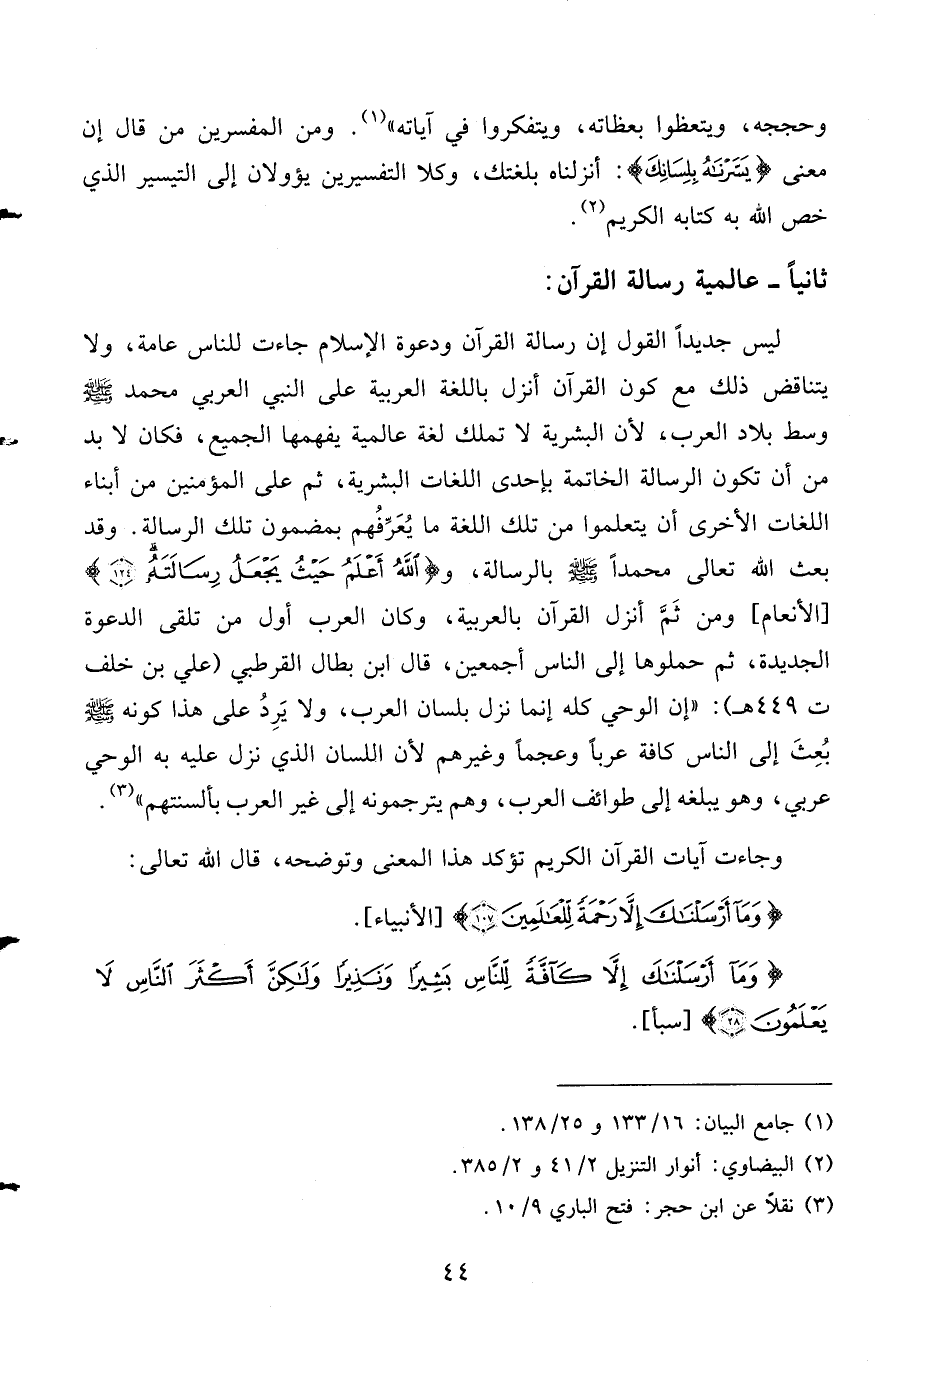 وحججه، ويتعظوا بعظاته، ويتفكروا في آياته»(١). ومن المفسرين من قال إن
معنى ﴿يَسَّرْنَاهُ بِلِسَانِكَ﴾: أنزلناه بلغتك، وكلا التفسيرين يؤولان إلى التيسير الذي
خص الله به كتابه الكريم(٢).
ثانياً ـ عالمية رسالة القرآن:
ليس جديداً القول إن رسالة القرآن ودعوة الإسلام جاءت للناس عامة، ولا
يتناقض ذلك مع كون القرآن أنزل باللغة العربية على النبي العربي محمد ﷺ
وسط بلاد العرب، لأن البشرية لا تملك لغة عالمية يفهمها الجميع، فكان لا بد
من أن تكون الرسالة الخاتمة بإحدى اللغات البشرية، ثم على المؤمنين من أبناء
اللغات الأخرى أن يتعلموا من تلك اللغة ما يُعَرِّفُهم بمضمون تلك الرسالة. وقد
بعث الله تعالى محمداً ﷺ بالرسالة، و﴿ٱللَّهُ أَعْلَمُ حَيْثُ يَجْعَلُ رِسَالَتَهُۥ ۗ ١٢٤﴾
[الأنعام] ومن ثَمَّ أنزل القرآن بالعربية، وكان العرب أول من تلقى الدعوة
الجديدة، ثم حملوها إلى الناس أجمعين، قال ابن بطال القرطبي (علي بن خلف
ت ٤٤٩هـ): «إن الوحي كله إنما نزل بلسان العرب، ولا يَرِدُ على هذا كونه ﷺ
بُعِثَ إلى الناس كافة عرباً وعجماً وغيرهم لأن اللسان الذي نزل عليه به الوحي
عربي، وهو يبلغه إلى طوائف العرب، وهم يترجمونه إلى غير العرب بألسنتهم»(٣).
وجاءت آيات القرآن الكريم تؤكد هذا المعنى وتوضحه، قال الله تعالى:
﴿وَمَآ أَرْسَلْنَٰكَ إِلَّا رَحْمَةً لِّلْعَٰلَمِينَ ١٠٧﴾ [الأنبياء].
﴿وَمَآ أَرْسَلْنَٰكَ إِلَّا كَآفَّةً لِّلنَّاسِ بَشِيرًا وَنَذِيرًا وَلَٰكِنَّ أَكْثَرَ ٱلنَّاسِ لَا
يَعْلَمُونَ ٢٨﴾ [سبأ].
(١) جامع البيان: ١٦/ ١٣٣ و ٢٥/ ١٣٨.
(٢) البيضاوي: أنوار التنزيل ٢/ ٤١ و ٢/ ٣٨٥.
(٣) نقلاً عن ابن حجر: فتح الباري ٩/ ١٠.
٤٤